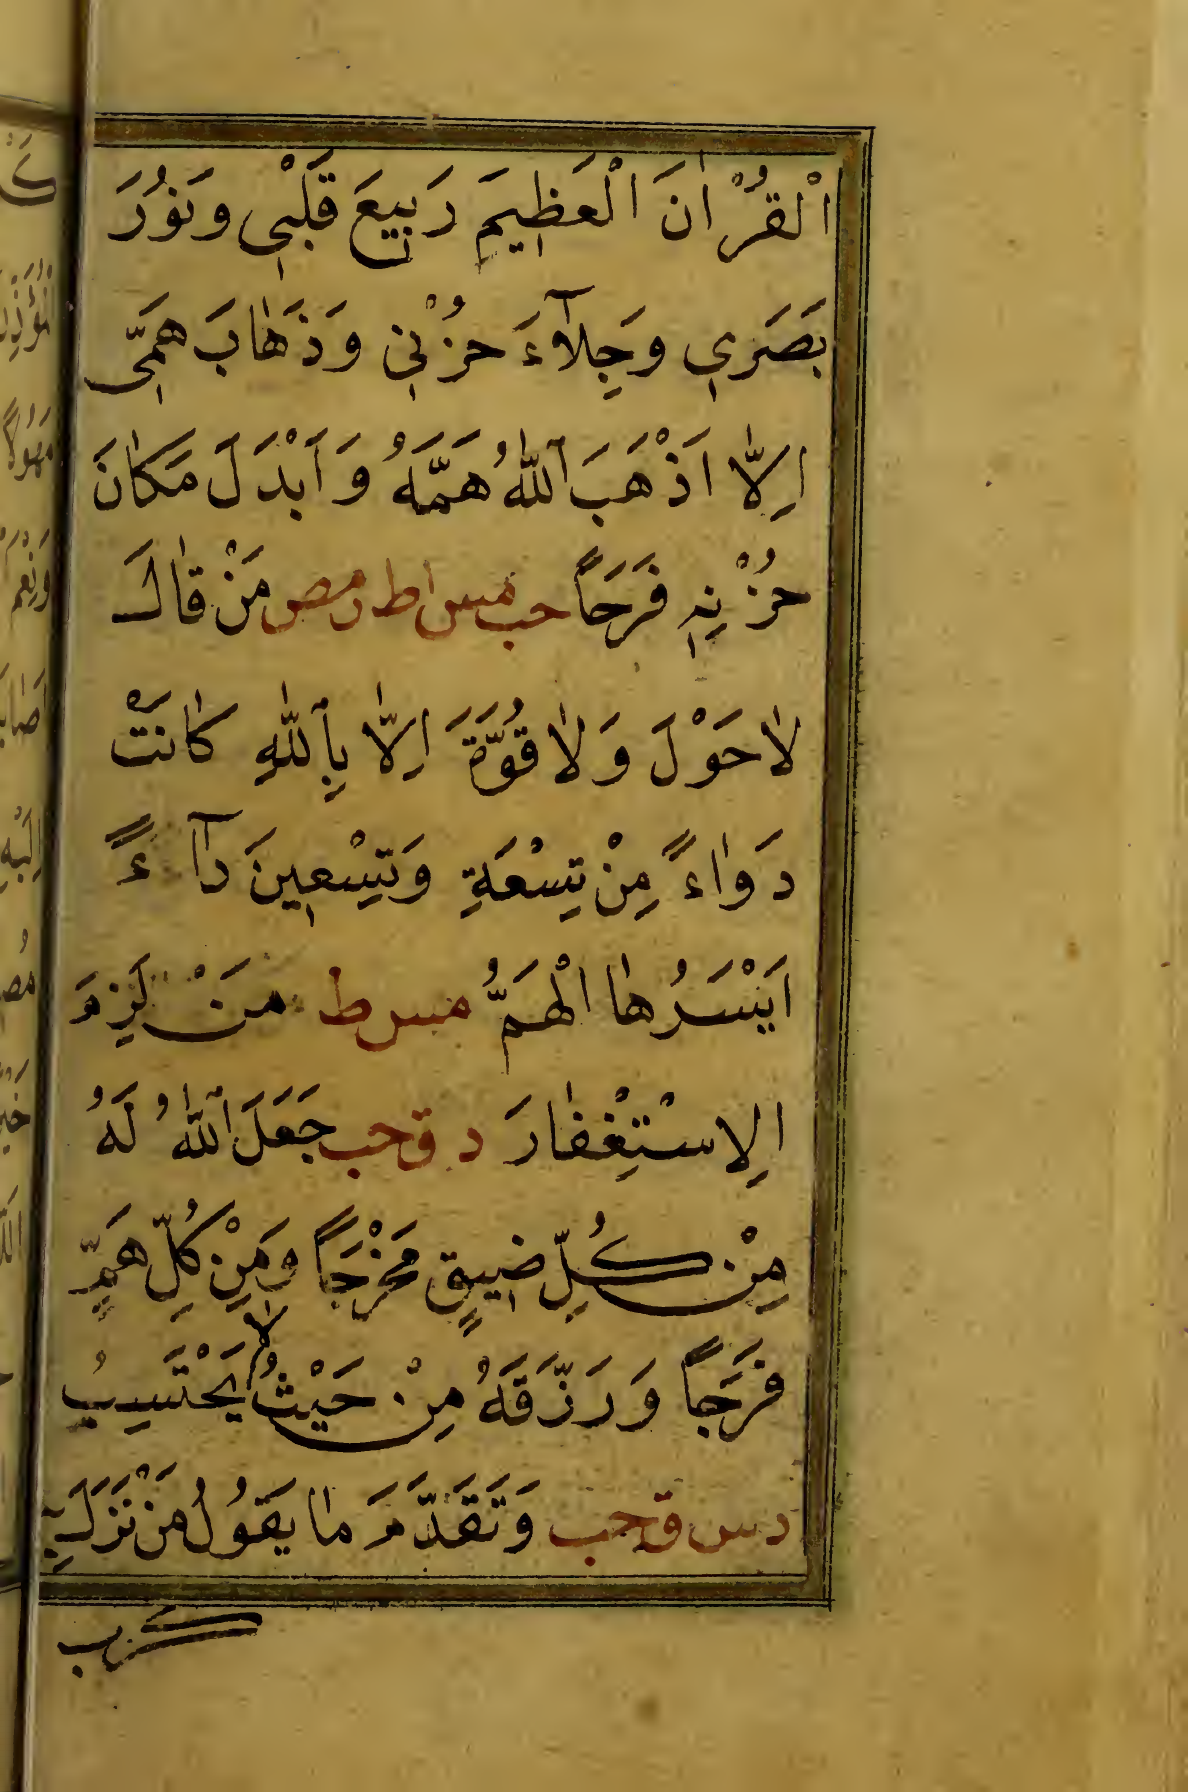 الْقُرْاٰنَ الْعَظِيمَ رَبِيعَ قَلْبِي وَنُورَ
بَصَرِي وَجِلَآءَ حُزْنِي وَذَهَابَ هَمِّي
اِلَّا اَذْهَبَ اللّٰهُ هَمَّهُ وَاَبْدَلَ مَكَانَ
حُزْنِهِ فَرَحًا حب مس اط ر مص مَنْ قَالَ
لَا حَوْلَ وَلَا قُوَّةَ اِلَّا بِاللّٰهِ كَانَتْ
دَوَاءً مِنْ تِسْعَةٍ وَتِسْعِينَ دَآءً
اَيْسَرُهَا الْهَمُّ مس ط مَنْ لَزِمَ
الِاسْتِغْفَارَ د ق حب جَعَلَ اللّٰهُ لَهُ
مِنْ كُلِّ ضِيقٍ مَخْرَجًا وَمِنْ كُلِّ هَمٍّ
فَرَجًا وَرَزَقَهُ مِنْ حَيْثُ لَا يَحْتَسِبُ
د س ق حب وَتَقَدَّمَ مَا يَقُولُ مَنْ نَزَلَ بِهِ
كرب